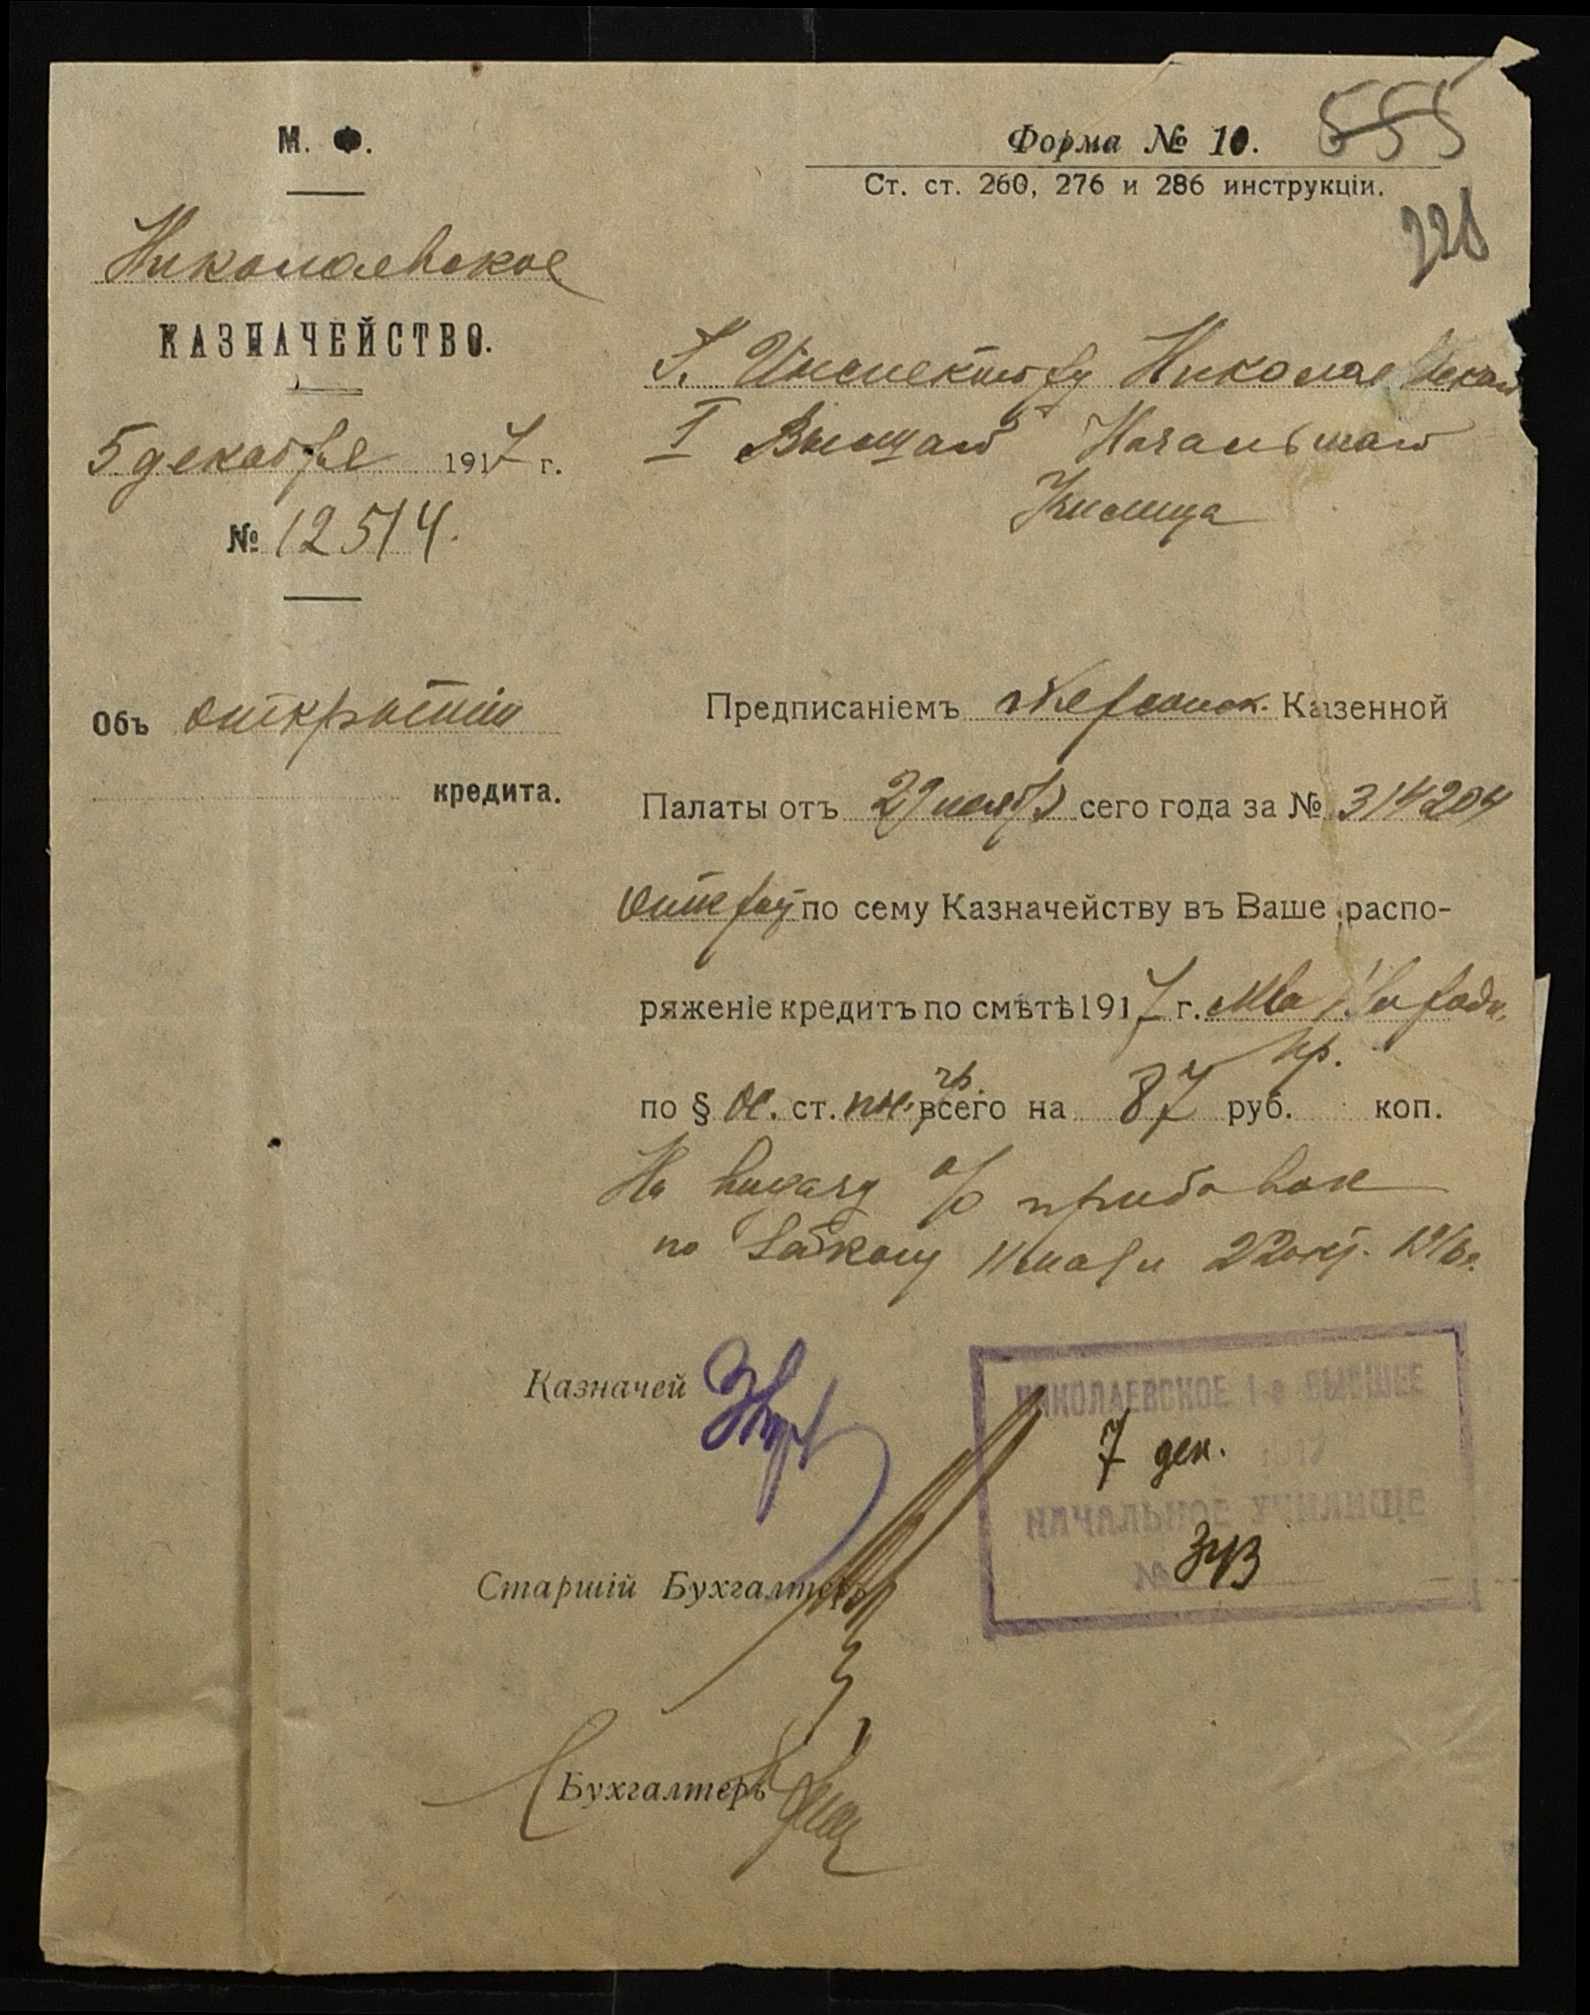 М. Ф.
Николаевское
КАЗНАЧЕЙСТВО.
5 декабря 1917 г.
№ 12514.
Объ открытіи
кредита.
Форма № 10.
Ст. ст. 260, 276 и 286 инструкціи.
555
228
Г. Инспектору Николаевскаго
I Высшаго Начальнаго
Училища
Предписаніемъ Херсонск. Казенной
Палаты отъ 29 ноября сего года за № 314204
открыт по сему Казначейству въ Ваше распо-
ряженіе кредитъ по смѣтѣ 1917 г.
по § ст. всего на 87 руб. коп.
На выдачу % прибавок
по закону 11 мая и 22 окт. 1916 г.
Казначей
Старшій Бухгалтеръ
Бухгалтеръ
НИКОЛАЕВСКОЕ 1-е ВЫСШЕЕ
7 дек. 1917
НАЧАЛЬНОЕ УЧИЛИЩЕ
№ 343